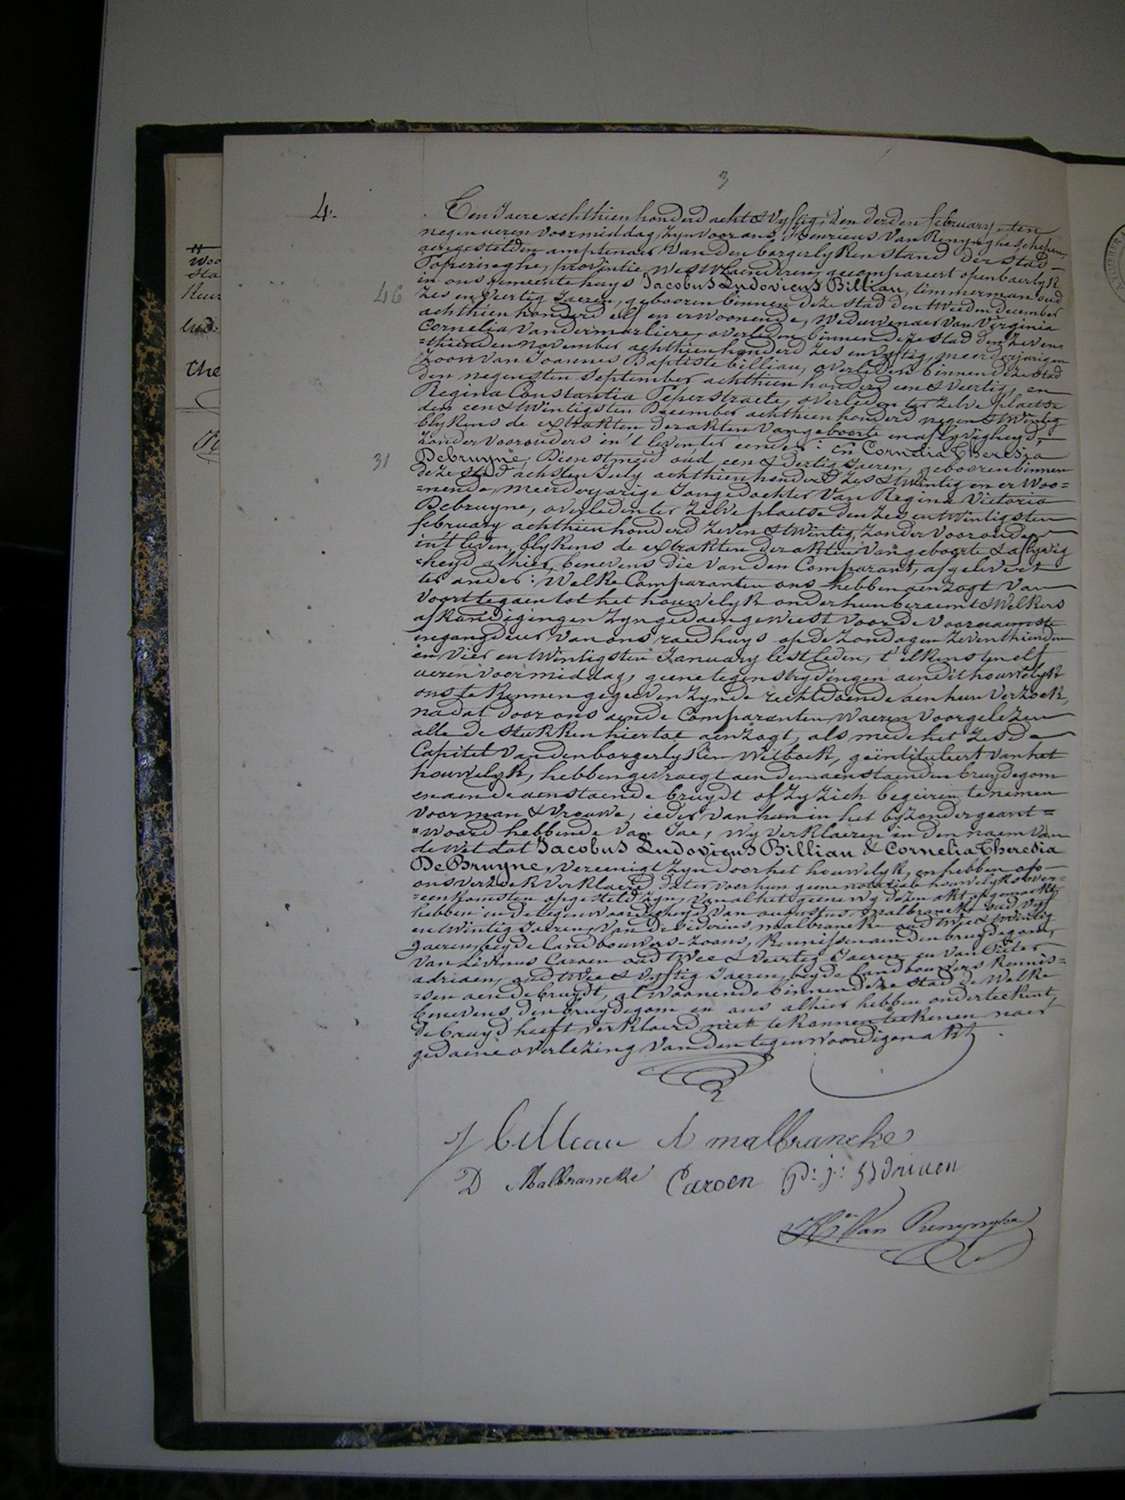 3
4.
Ten Jaere achthien honderd acht & vyftig, den derden february, ten
negen uren voormiddag, zyn voor ons, Henricus Van Renynghe schepen,
aengestelden amptenaer van den borgerlyken stand der stad
Poperinghe, provintie Westvlaenderen, gecompareert openbaerlyk
in ons Gemeentehuys Jacobus Ludovicus Billiau, timmerman oud
46
zes en veertig Jaeren, geboren binnen deze stad den tweeden december
achthien honderd elf en er woonende, Weduwenaer van Virginia
Cornelia Vandermarliere, overleden binnen deze stad den zeven-
=thienden november achthien honderd zes en vyftig, meerderjarigen
Zoon van Joannes Baptiste billiau, overleden binnen deze stad
den negensten September achthien honderd een & veertig, en
Regina Constantia Peperstraete, overleden ter zelve plaetse
den een & twintigsten December achthien honderd negen & twintig
blykens de extrakten der akten van geboorte en aflyvigheyd,
Zonder voorouders in 't leven ter eender: en Cornelia Theresia
31
Debruyne, Dienstmeid oud een & dertig Jaeren, geboren binnen
deze stad achsten July achthien honderd zes & twintig en er woo=
=nende, meerderjarige Jonge dochter van Regina Victoria
Debruyne, overleden ter zelve plaetse den zes en twintigsten
february achthien honderd zeven & twintig, zonder voorouders
in 't leven, blykens de extrakten der akten van geboorte & aflyvig
=heyd alhier, benevens die van den Comparant, afgelevert
ter ander: Welke Comparanten ons hebben aenzogt van
voort te gaen tot het houwelyk onder hun beraemt & Welkers
afkondigingen zyn gedaen geweest voor de voornaemste
ingangdeur van ons raedhuys op de Zondagen zeventhienden
en vier en twintigsten January lestleden, t' elkens ten elf
uren voormiddag, geene tegenstrydingen aen dit houwelyk
ons te kennen gegeven zynde rechtdoende aen hun verzoek,
nadat door ons aen de Comparanten, waeren voorgelezen
alle de stukken hiertoe aenzogt, als mede het zesde
Capitel van den borgerlyken Wetboek, geïntituleert van het
houwelyk, hebben gevraegt aen den aenstaenden bruydegom
en aen de aenstaende bruydt of zy zich begeiren te nemen
voor man & Vrouwe, ieder van hun in het byzonder geant=
=woord hebbende van Jae, wy verklaeren in den naem van
de Wet dat Jacobus Ludovicus Billiau & Cornelia Theresia
DeBruyne, vereenigt zyn door het houwelyk, en hebben op
ons verzoek verklaerd dater voor hun geene notariale houwelyksover=
=eenkomsten opgesteld zyn, van al het geene wy dezen akt opgemaekt
hebben in de tegenwoordigheyd van augustus malbrancke oud vyf
en twintig Jaeren, van Desiderius malbrancke oud twee & twintig
Jaeren, beyde landbouwers-zoons, kennissen aen den bruydegom,
van Livinus Caroen oud twee & veertig Jaeren en van Pieter
adriaen, oud twee & vyftig Jaeren, beyde landbouwers kennis=
=sen aen de bruydt, al woonende binnen deze stad de welke
benevens den bruydegom en ons alhier hebben onderteekent,
de bruyd heeft verklaerd niet te konnen teekenen naer
gedaene overlezing van den tegenwoordigen akt.
J billiau A malbrancke
D Malbrancke Caroen P: j: Adriaen
He Van Renynghe